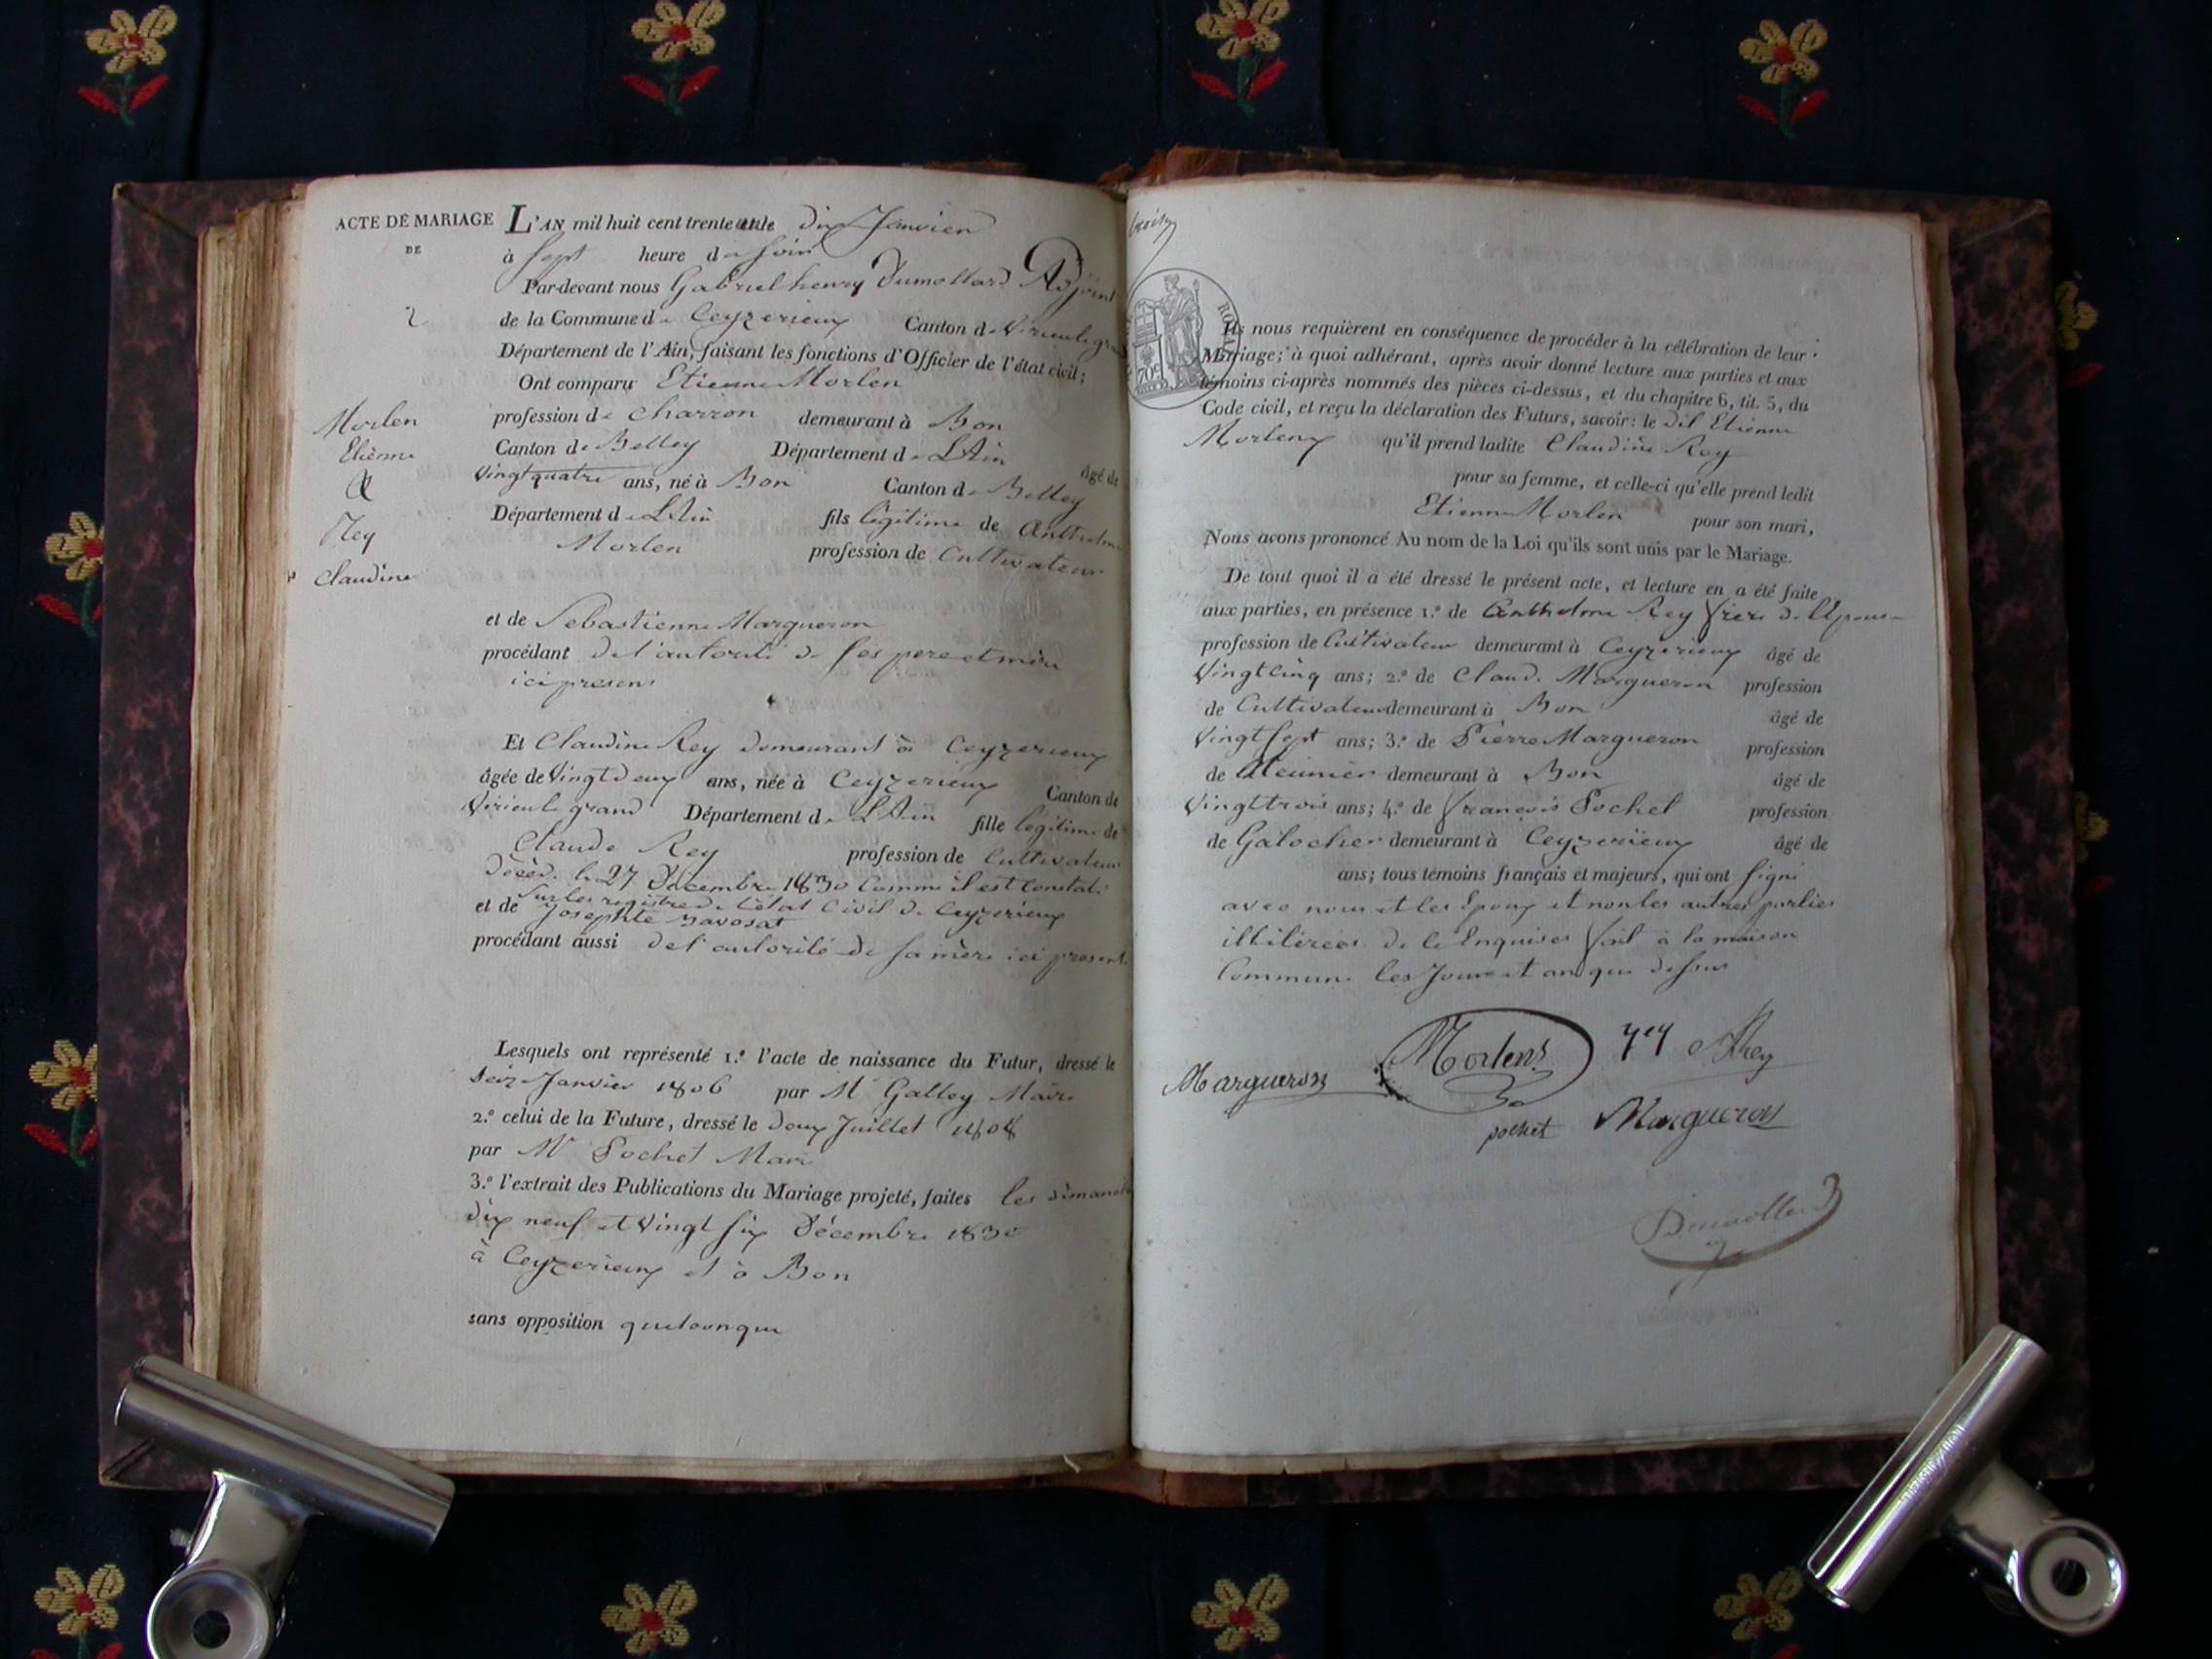 ACTE DE MARIAGE
DE
2
Morlen
Etienne
&
Rey
Claudine
L'AN mil huit cent trente et un le dix Janvier
à Sept heure du Soir
Par-devant nous Gabriel henry Dumollard Adjoint
de la Commune de Ceyzerieux Canton de Virieu le grand
Département de l'Ain, faisant les fonctions d'Officier de l'état civil;
Ont comparu Etienne Morlen
profession de Charron demeurant à Bon
Canton de Belley Département de L'Ain âgé de
Vingt quatre ans, né à Bon Canton de Belley
Département de L'Ain fils légitime de Anthelme
Morlen profession de Cultivateur
et de Sebastienne Margueron
procédant de l'autorité de ses pere et mère
ici presens
Et Claudine Rey demeurant à Ceyzerieux
âgée de Vingt deux ans, née à Ceyzerieux Canton de
Virieu le grand Département de L'Ain fille légitime de
Claude Rey profession de Cultivateur
décédé le 27 Décembre 1830 Comme il est Constaté
Sur les registre de l'état Civil de Ceyzerieux
et de Josephte Savosat
procédant aussi de l'autorité de sa mère ici present
Lesquels ont représenté 1.º l'acte de naissance du Futur, dressé le
Seize Janvier 1806 par Mr Galley Maire
2.º celui de la Future, dressé le Deux Juillet 1808
par Mr Pochet Maire
3.º l'extrait des Publications du Mariage projeté, faites les dimanche
dix neuf et Vingt six Décembre 1830
à Ceyzerieux et à Bon
sans opposition quelconque
trois
70c
Ils nous requièrent en conséquence de procéder à la célébration de leur
Mariage; à quoi adhérant, après avoir donné lecture aux parties et aux
témoins ci-après nommés des pièces ci-dessus, et du chapitre 6, tit. 5, du
Code civil, et reçu la déclaration des Futurs, savoir: le dit Etienne
Morlen qu'il prend ladite Claudine Rey
pour sa femme, et celle-ci qu'elle prend ledit
Etienne Morlen pour son mari,
Nous avons prononcé Au nom de la Loi qu'ils sont unis par le Mariage.
De tout quoi il a été dressé le présent acte, et lecture en a été faite
aux parties, en présence 1.º de Anthelme Rey frère de l'Epouse
profession de Cultivateur demeurant à Ceyzerieux âgé de
Vingt Cinq ans; 2.º de Claude Margueron profession
de Cultivateur demeurant à Bon âgé de
Vingt sept ans; 3.º de Pierre Margueron profession
de Meunier demeurant à Bon âgé de
Vingt trois ans; 4.º de françois Pochet profession
de Galocher demeurant à Ceyzerieux âgé de
ans; tous témoins français et majeurs, qui ont signé
avec nous et les Epoux et non les autres parties
illitérées de ce Enquises fait à la maison
Commune les Jour et an que dessus
Margueron Morlen Rey
pochet Margueron
Dumollard